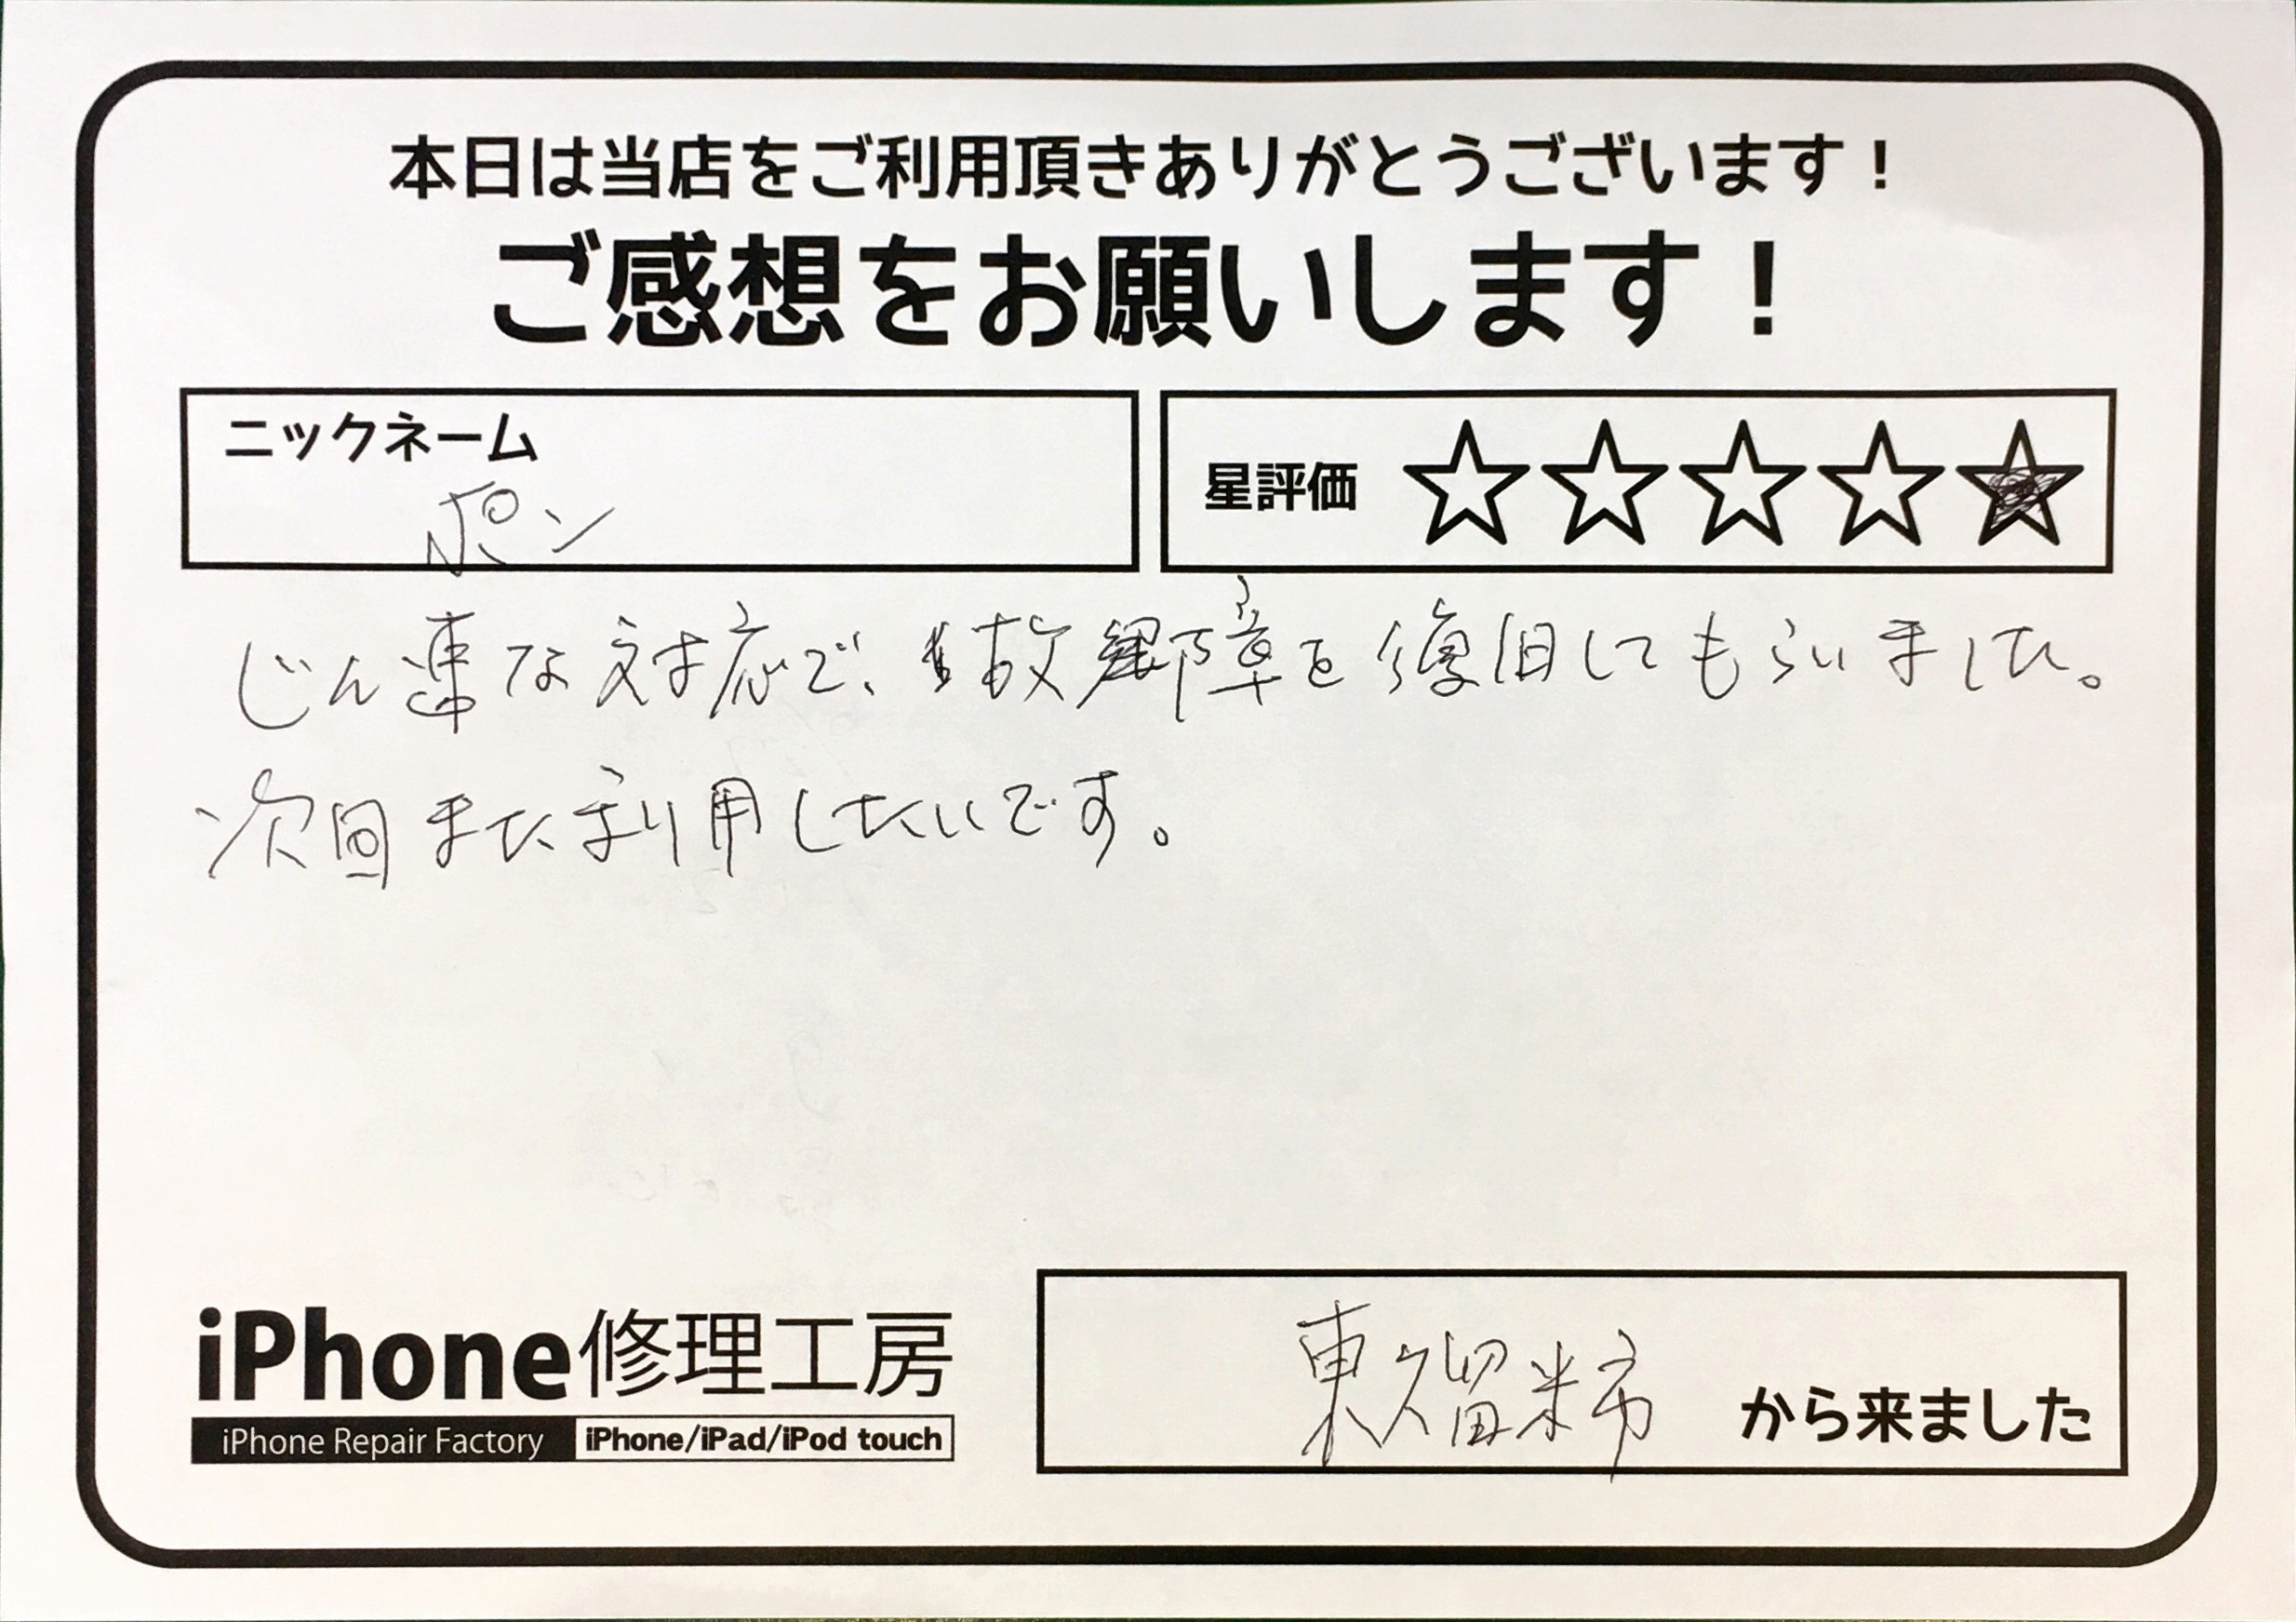 本日は当店をご利用頂きありがとうございます！
ご感想をお願いします！
ニックネーム
ポン
星評価 ☆☆☆☆★
じん速な対応で、故障を復旧してもらいました。
次回また利用したいです。
iPhone修理工房
iPhone Repair Factory iPhone/iPad/iPod touch
東久留米市 から来ました